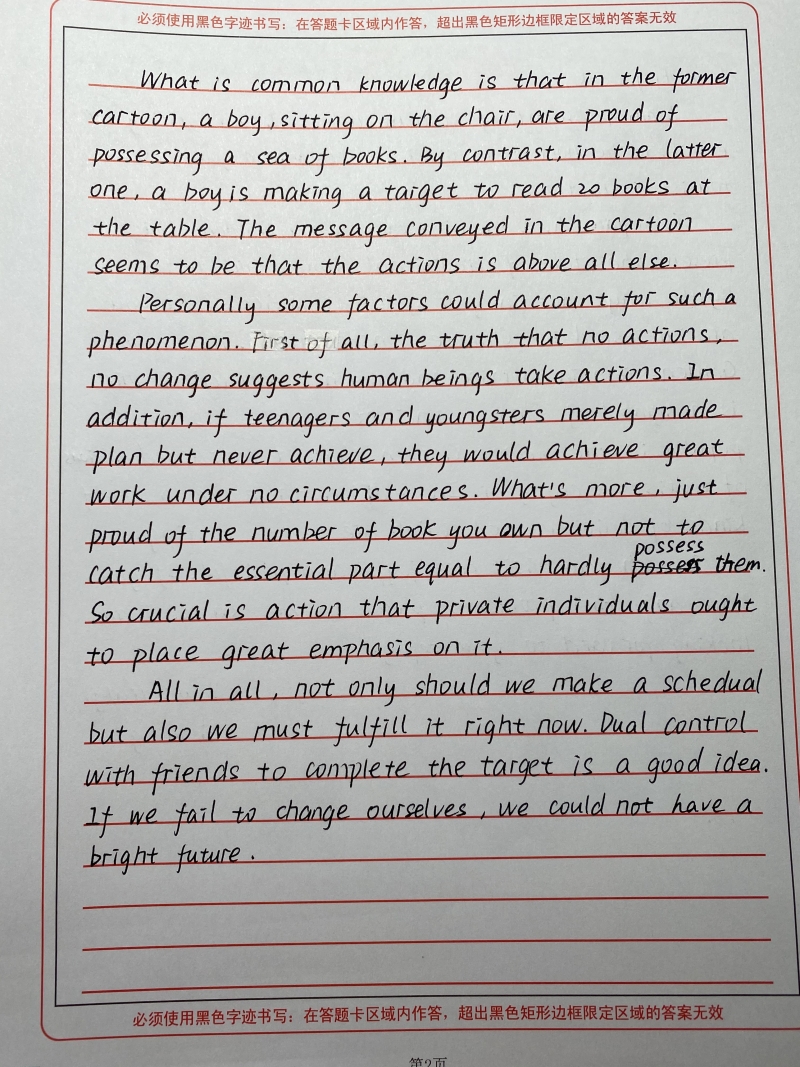 必须使用黑色字迹书写：在答题卡区域内作答，超出黑色矩形边框限定区域的答案无效
What is common knowledge is that in the former
cartoon, a boy, sitting on the chair, are proud of
possessing a sea of books. By contrast, in the latter
one, a boy is making a target to read 20 books at
the table. The message conveyed in the cartoon
seems to be that the actions is above all else.
Personally some factors could account for such a
phenomenon. First of all, the truth that no actions,
no change suggests human beings take actions. In
addition, if teenagers and youngsters merely made
plan but never achieve, they would achieve great
work under no circumstances. What's more, just
proud of the number of book you own but not to
possess
catch the essential part equal to hardly possess them.
So crucial is action that private individuals ought
to place great emphasis on it.
All in all, not only should we make a schedual
but also we must fulfill it right now. Dual control
with friends to complete the target is a good idea.
If we fail to change ourselves, we could not have a
bright future.
必须使用黑色字迹书写：在答题卡区域内作答，超出黑色矩形边框限定区域的答案无效
第2页